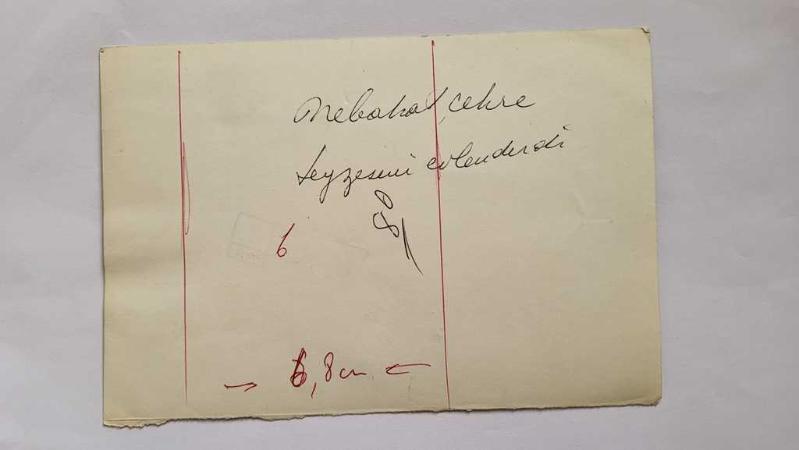 Nebahat Çehre
teyzesini evlendirdi
6
6,8 cm